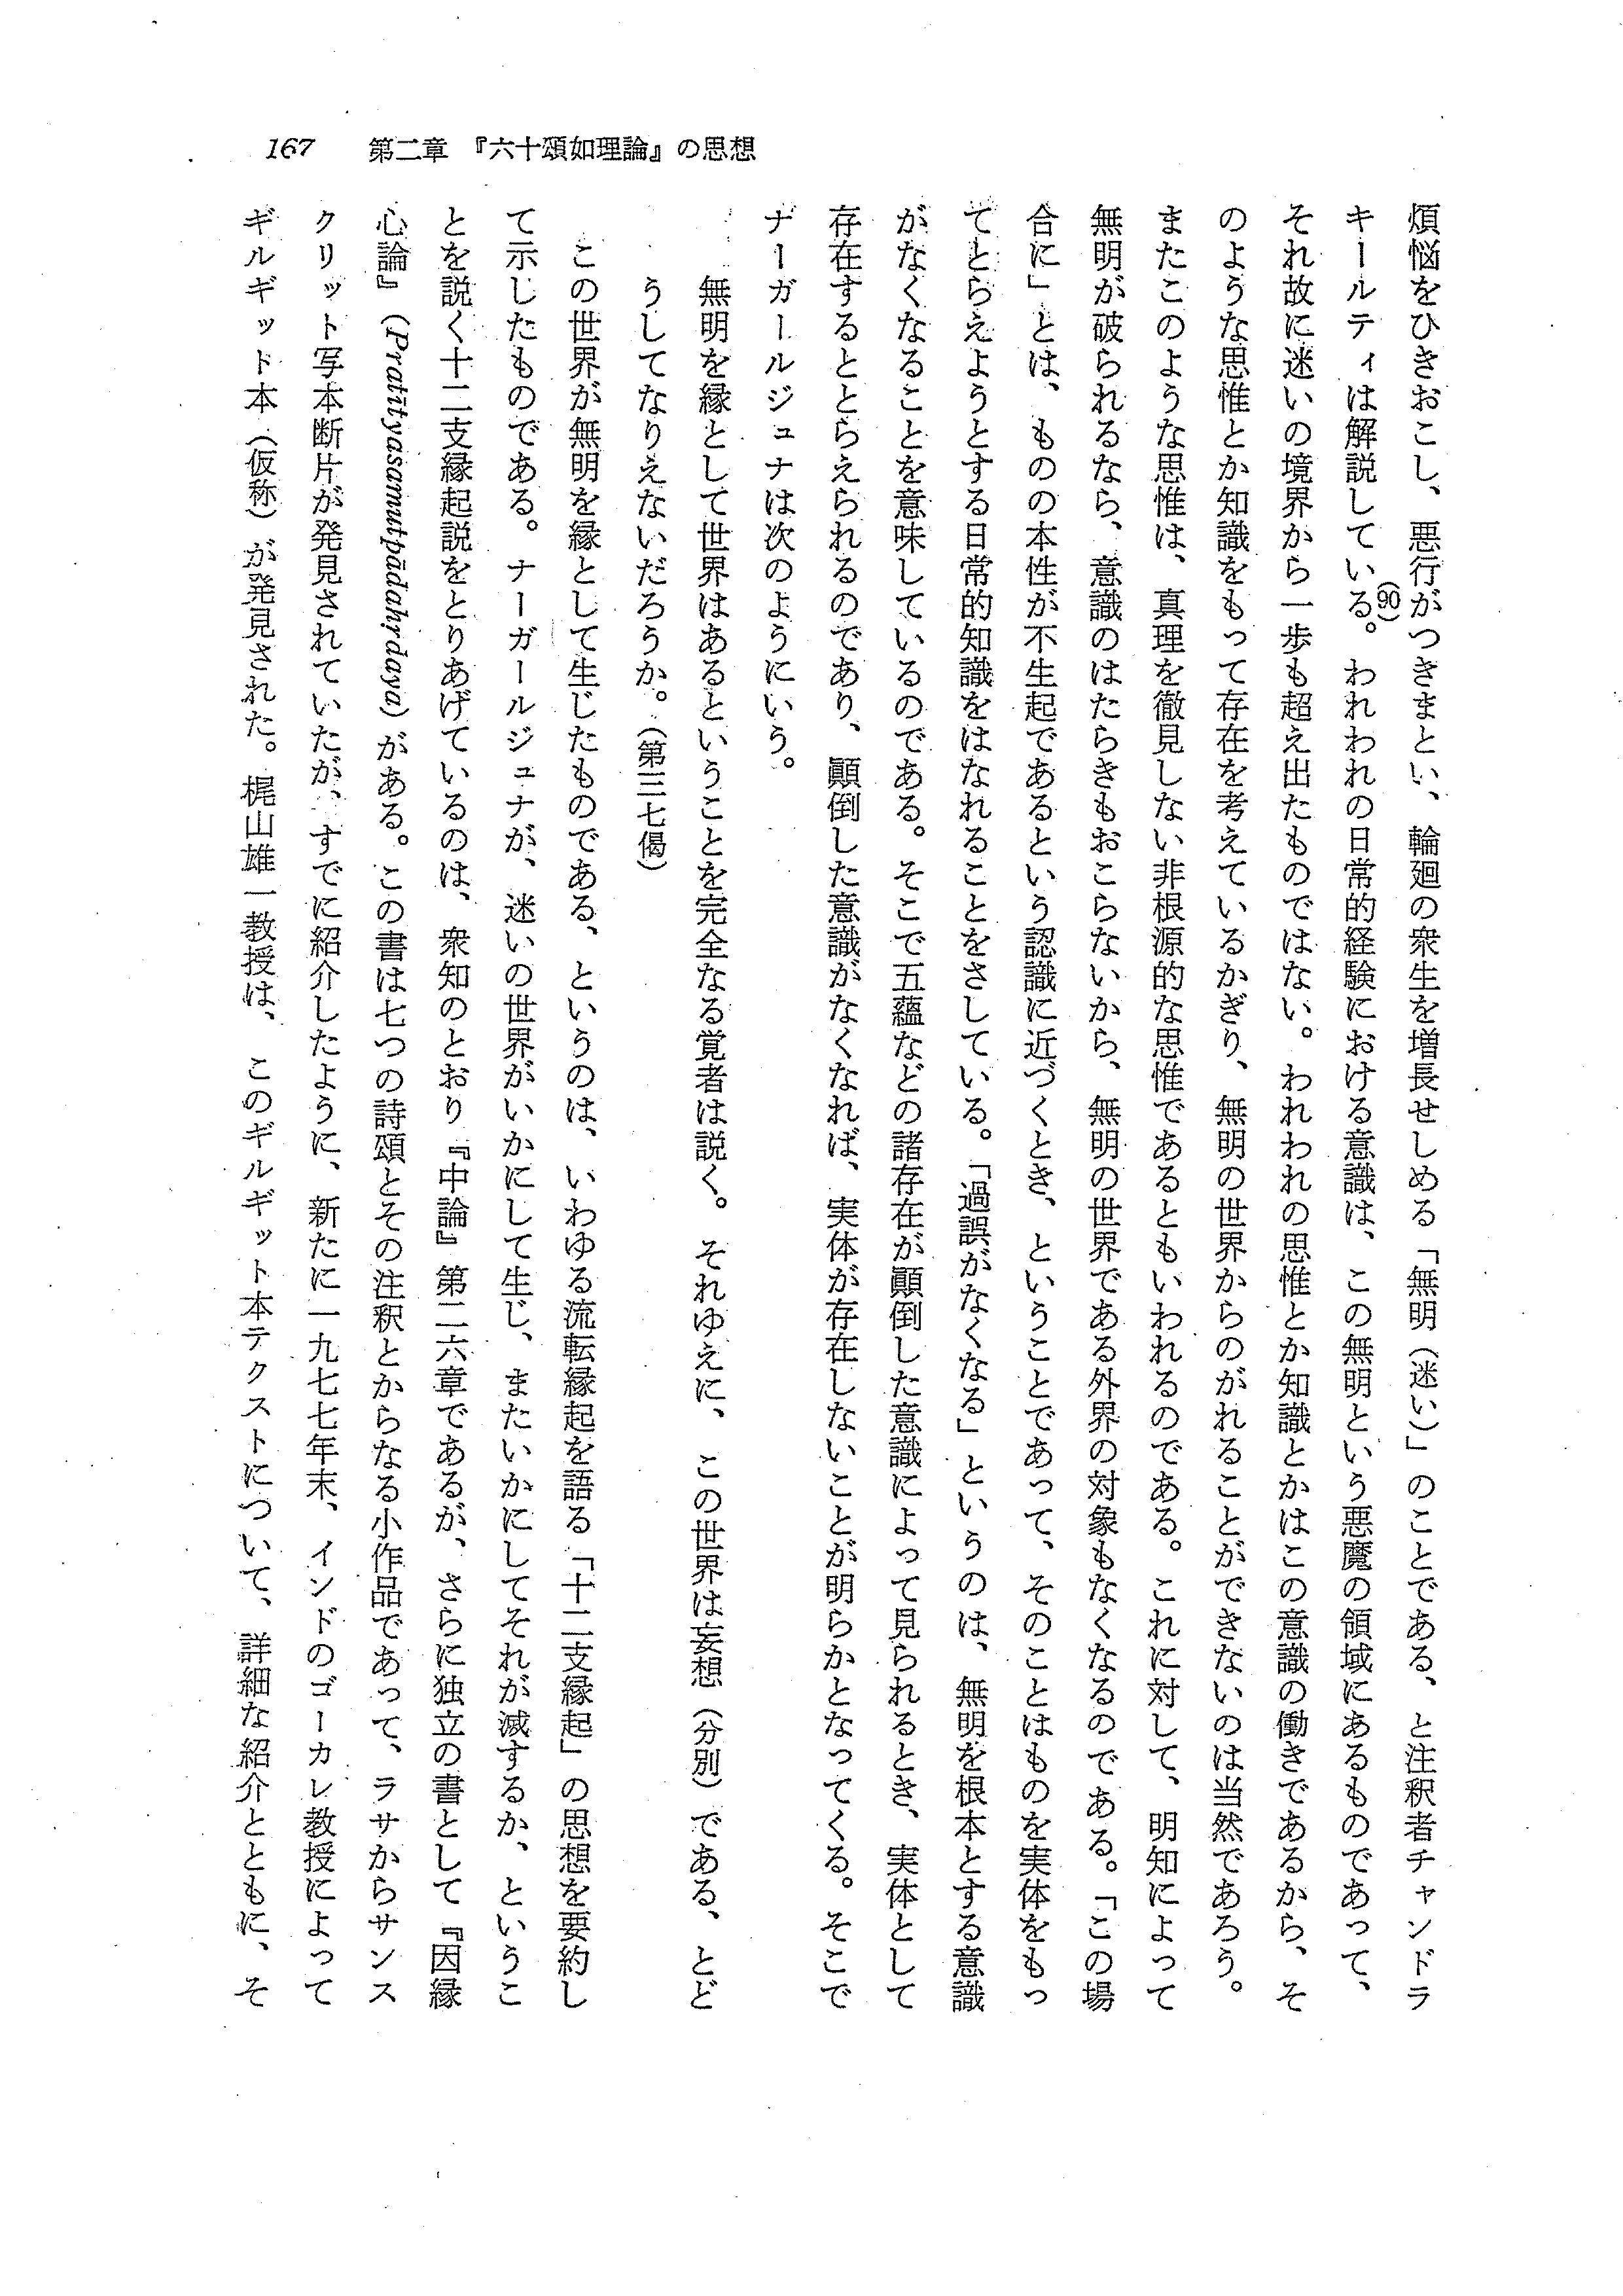 167　第二章　『六十頌如理論』の思想
煩悩をひきおこし、悪行がつきまとい、輪廻の衆生を増長せしめる「無明（迷い）」のことである、と注釈者チャンドラ
キールティは解説している。(90)われわれの日常的経験における意識は、この無明という悪魔の領域にあるものであって、
それ故に迷いの境界から一歩も超え出たものではない。われわれの思惟とか知識とかはこの意識の働きであるから、そ
のような思惟とか知識をもって存在を考えているかぎり、無明の世界からのがれることができないのは当然であろう。
またこのような思惟は、真理を徹見しない非根源的な思惟であるともいわれるのである。これに対して、明知によって
無明が破られるなら、意識のはたらきもおこらないから、無明の世界である外界の対象もなくなるのである。「この場
合に」とは、ものの本性が不生起であるという認識に近づくとき、ということであって、そのことはものを実体をもっ
てとらえようとする日常的知識をはなれることをさしている。「過誤がなくなる」というのは、無明を根本とする意識
がなくなることを意味しているのである。そこで五蘊などの諸存在が顚倒した意識によって見られるとき、実体として
存在するととらえられるのであり、顚倒した意識がなくなれば、実体が存在しないことが明らかとなってくる。そこで
ナーガールジュナは次のようにいう。
無明を縁として世界はあるということを完全なる覚者は説く。それゆえに、この世界は妄想（分別）である、とど
うしてなりえないだろうか。（第三七偈）
この世界が無明を縁として生じたものである、というのは、いわゆる流転縁起を語る「十二支縁起」の思想を要約し
て示したものである。ナーガールジュナが、迷いの世界がいかにして生じ、またいかにしてそれが滅するか、というこ
とを説く十二支縁起説をとりあげているのは、衆知のとおり『中論』第二六章であるが、さらに独立の書として『因縁
心論』（Pratītyasamutpādahṛdaya）がある。この書は七つの詩頌とその注釈とからなる小作品であって、ラサからサンス
クリット写本断片が発見されていたが、すでに紹介したように、新たに一九七七年末、インドのゴーカレ教授によって
ギルギッド本（仮称）が発見された。梶山雄一教授は、このギルギット本テクストについて、詳細な紹介とともに、そ